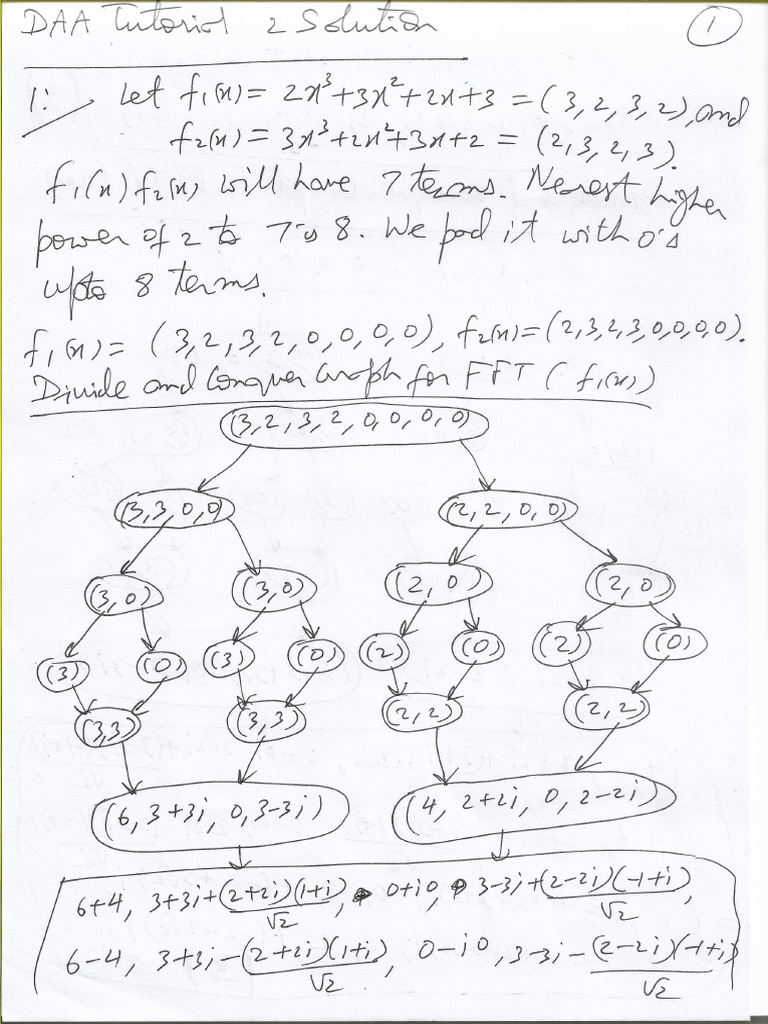 DAA Tutorial 2 Solution
1
1: Let f₁(x) = 2x³+3x²+2x+3 = (3,2,3,2), and
f₂(x) = 3x³+2x²+3x+2 = (2,3,2,3).
f₁(x)f₂(x) will have 7 terms. Nearest higher
power of 2 to 7 is 8. We pad it with 0's
upto 8 terms.
f₁(x) = (3,2,3,2,0,0,0,0), f₂(x)=(2,3,2,3,0,0,0,0).
Divide and Conquer Graph for FFT (f₁(x))
(3,2,3,2,0,0,0,0)
(3,3,0,0) (2,2,0,0)
(3,0) (3,0) (2,0) (2,0)
(3) (0) (3) (0) (2) (0) (2) (0)
(3,3) (3,3) (2,2) (2,2)
(6, 3+3i, 0, 3-3i) (4, 2+2i, 0, 2-2i)
6+4, 3+3i+(2+2i)(1+i)/√2, 0+i0, 3-3i+(2-2i)(-1+i)/√2,
6-4, 3+3i-(2+2i)(1+i)/√2, 0-i0, 3-3i-(2-2i)(-1+i)/√2